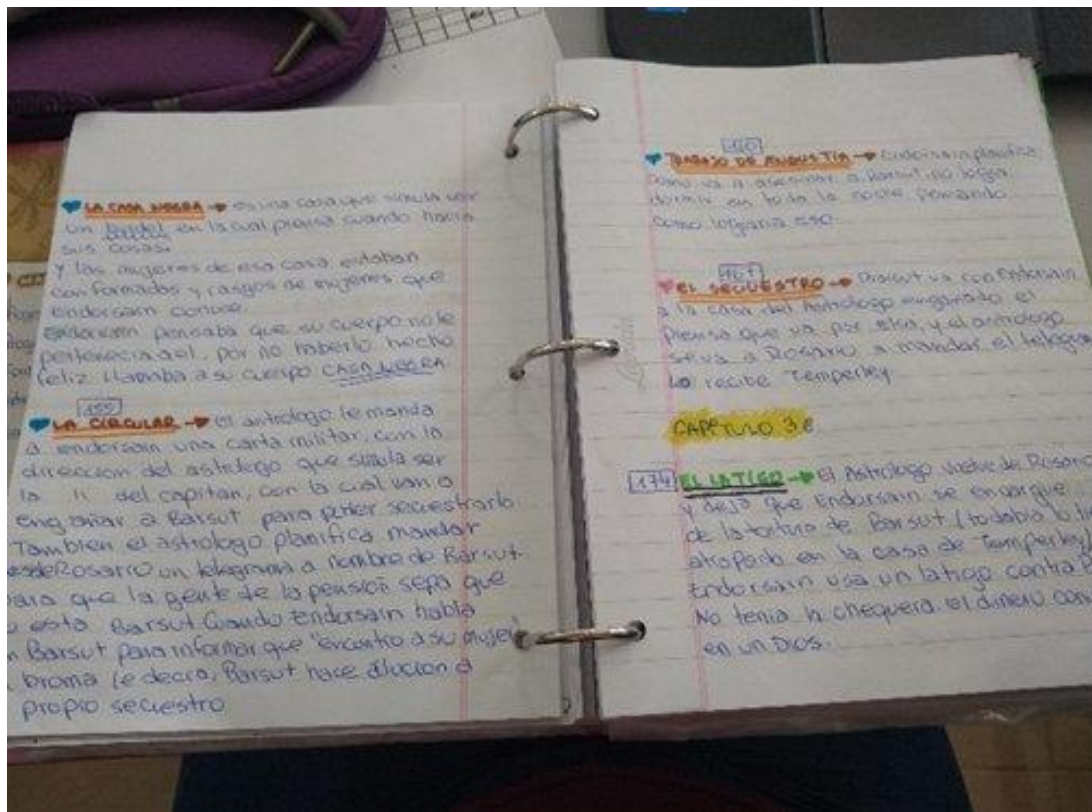 LA CASA NEGRA → es una casa que simula ser
un burdel en la cual piensa cuando hacia
sus cosas.
Y las mujeres de esa casa estaban
conformadas y rasgos de mujeres que
endorsain conoce.
Endorsain pensaba que su cuerpo no le
pertenecia a el, por no haberlo hecho
feliz llamaba a su cuerpo CASA NEGRA.
155
LA CIRCULAR → El astrologo le manda
a endorsain una carta militar, con la
direccion del astrologo que simula ser
la 11 del capitan, con la cual van a
engañar a Barsut para poder secuestrarlo
Tambien el astrologo planifica mandar
desde Rosario un telegrama a nombre de Barsut
para que la gente de la pension sepa que
esta Barsut Cuando Endorsain habla
Barsut para informar que "encontro a su mujer"
broma le decia, Barsut hace alucion a
propio secuestro
160
TRABAJO DE ANGUSTIA → Endorsain planifica
como va a asesinar a Barsut, no logra
dormir en toda la noche pensando
como lograria eso.
167
EL SECUESTRO → Barsut va con Endorsain
a la casa del Astrologo engañado el
piensa que va por elsa, y el astrologo
se va a Rosario a mandar el telegra
Lo recibe Temperley
CAPITULO 3.
174 EL LATIGO → El Astrologo vuelve de Rosario
y deja que Endorsain se encargue
de la tortura de Barsut (todabia lo
atrapado en la casa de Temperley)
Endorsain usa un latigo contra
No tenia la chequera. el dinero con
en un Dios.